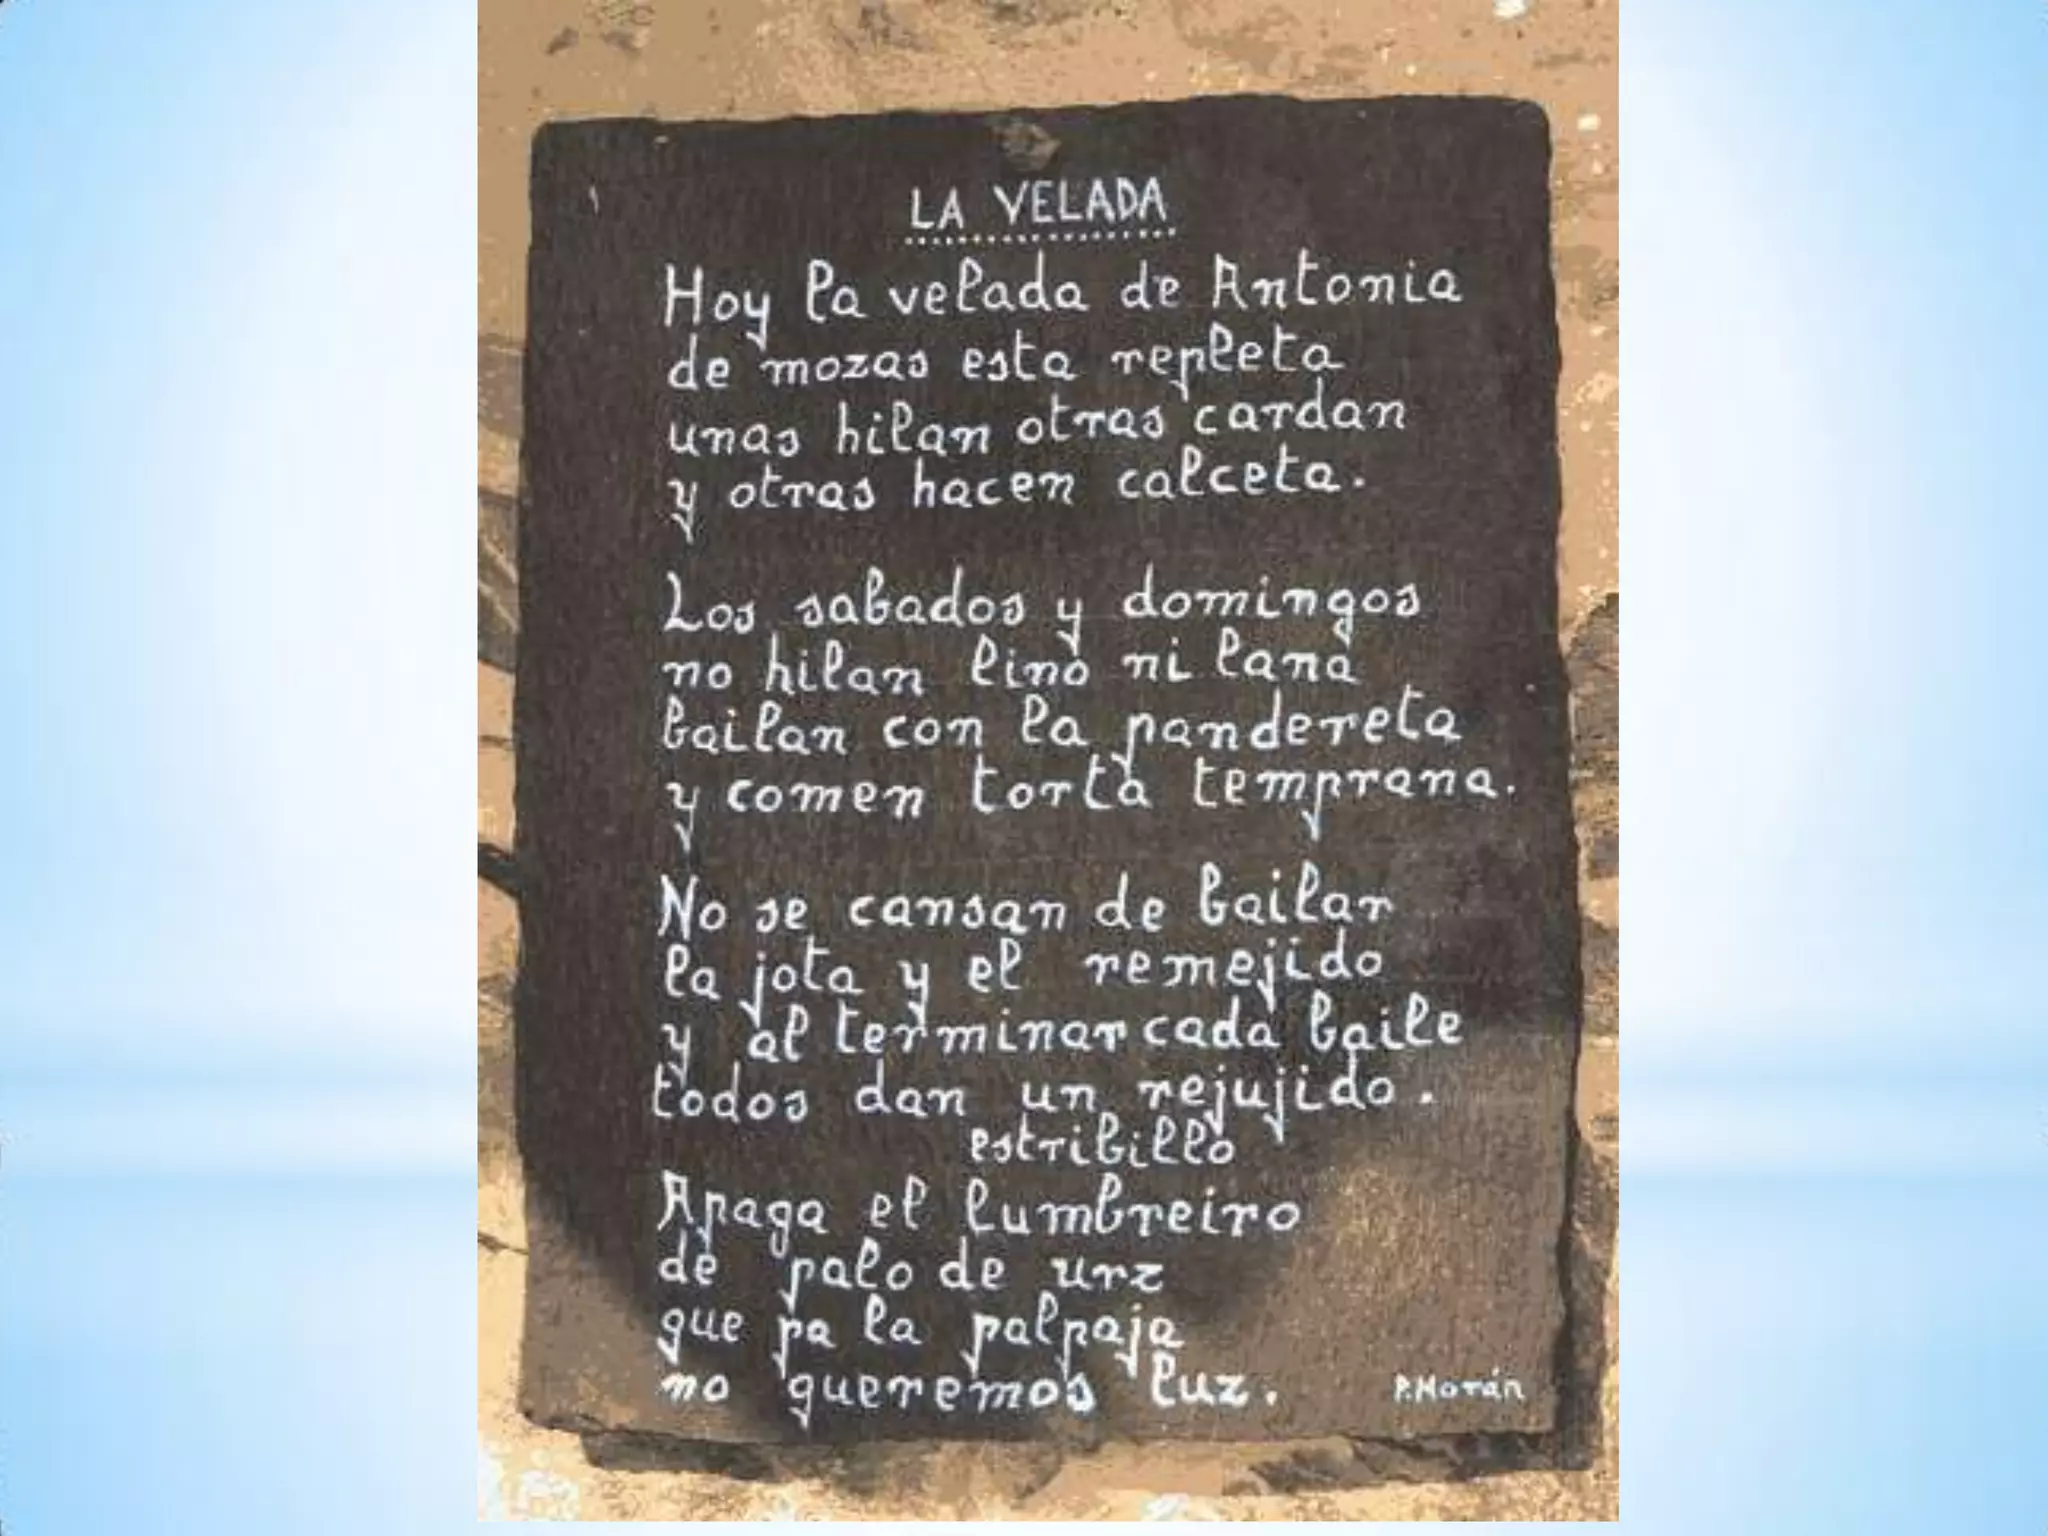 LA VELADA
Hoy la velada de Antonia
de mozas esta repleta
unas hilan otras cardan
y otras hacen calceta.
Los sabados y domingos
no hilan lino ni lana
bailan con la pandereta
y comen torta temprana.
No se cansan de bailar
la jota y el remejido
y al terminar cada baile
todos dan un rejujido.
estribillo
Apaga el lumbreiro
de palo de urz
que pa la palpaja
no queremos luz.
P.Morán